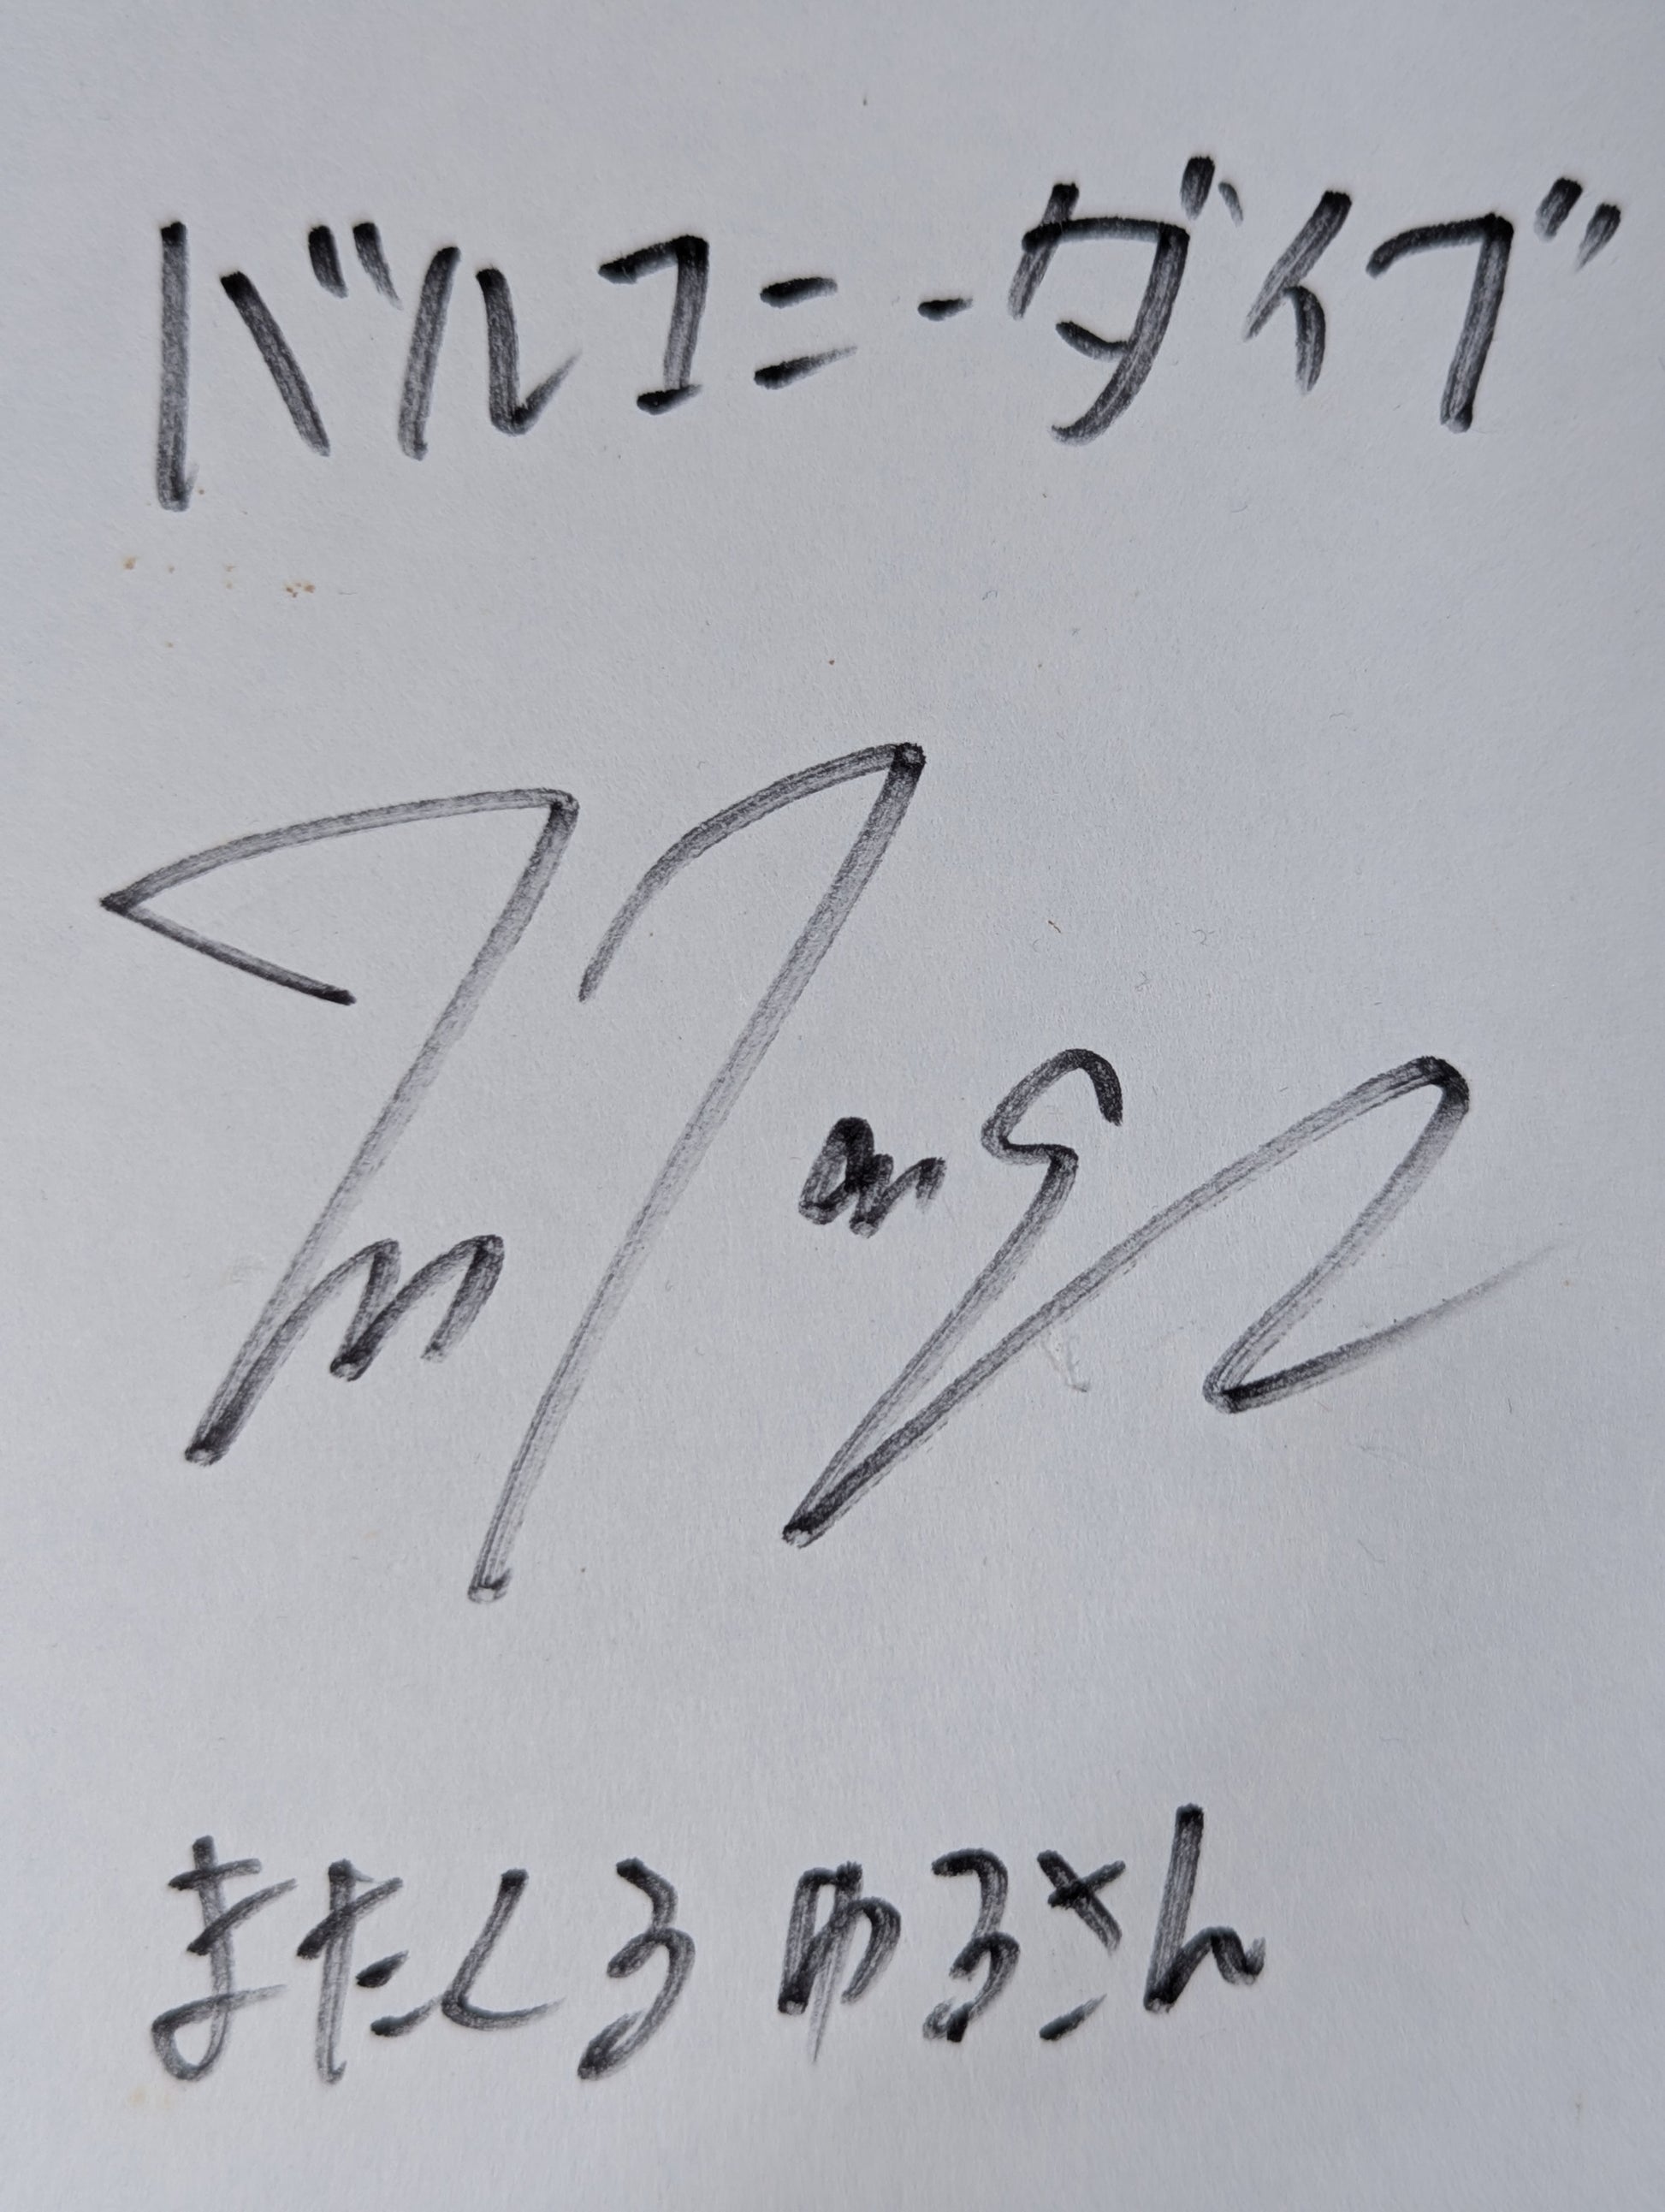 バルコニーダイブ
またくる ゆるさん